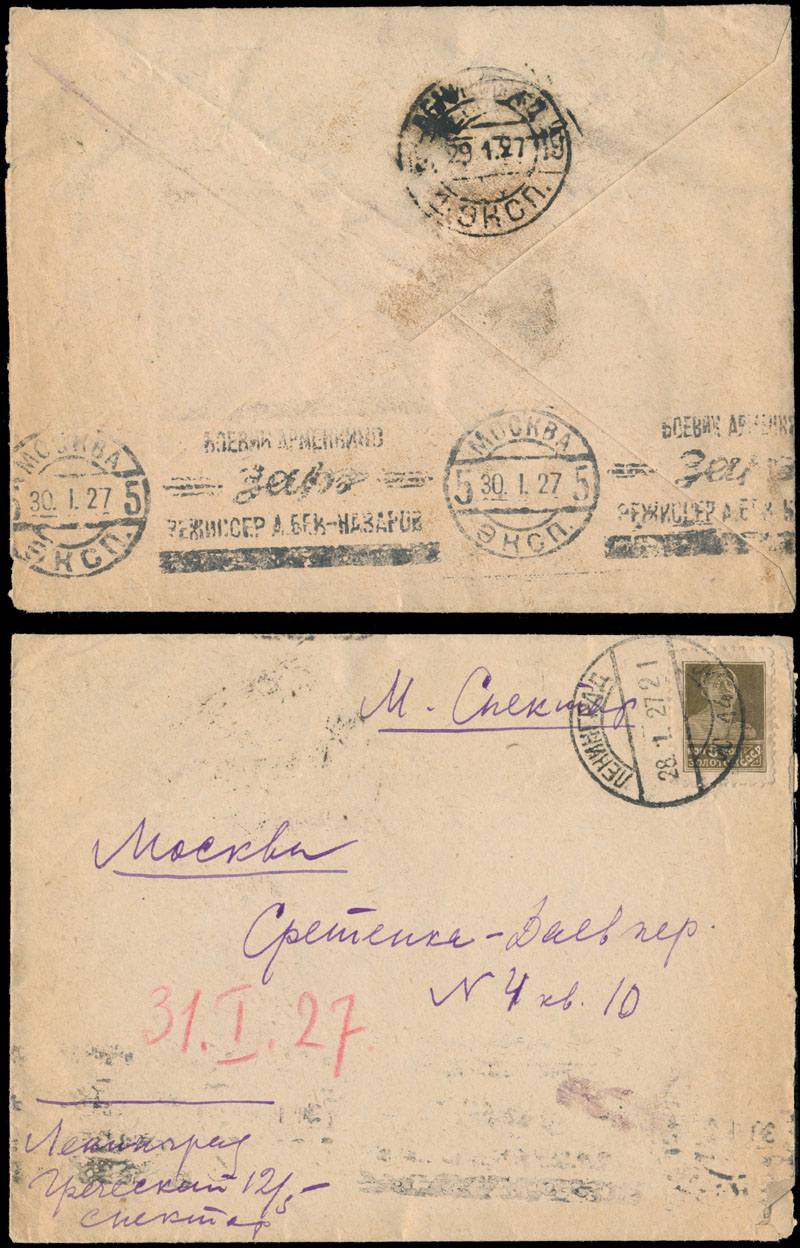 29 1.27
ЭКСП.
МОСКВА
5 30. I. 27 5
ЭКСП.
БОЕВИК АРМЕНКИНО
Заре
РЕЖИССЕР А. БЕК-НАЗАРОВ
МОСКВА
5 30. I. 27 5
ЭКСП.
БОЕВИК
РЕЖИССЕР А. БЕК-
М. Спектор
ЛЕНИНГРАД
28. 1. 27 21
ЗОЛОТОМ СССР
Москва
Сретенка - Даев пер.
N 4 кв. 10
31. I. 27.
Ленинград
Греческий 12/5
Спектор